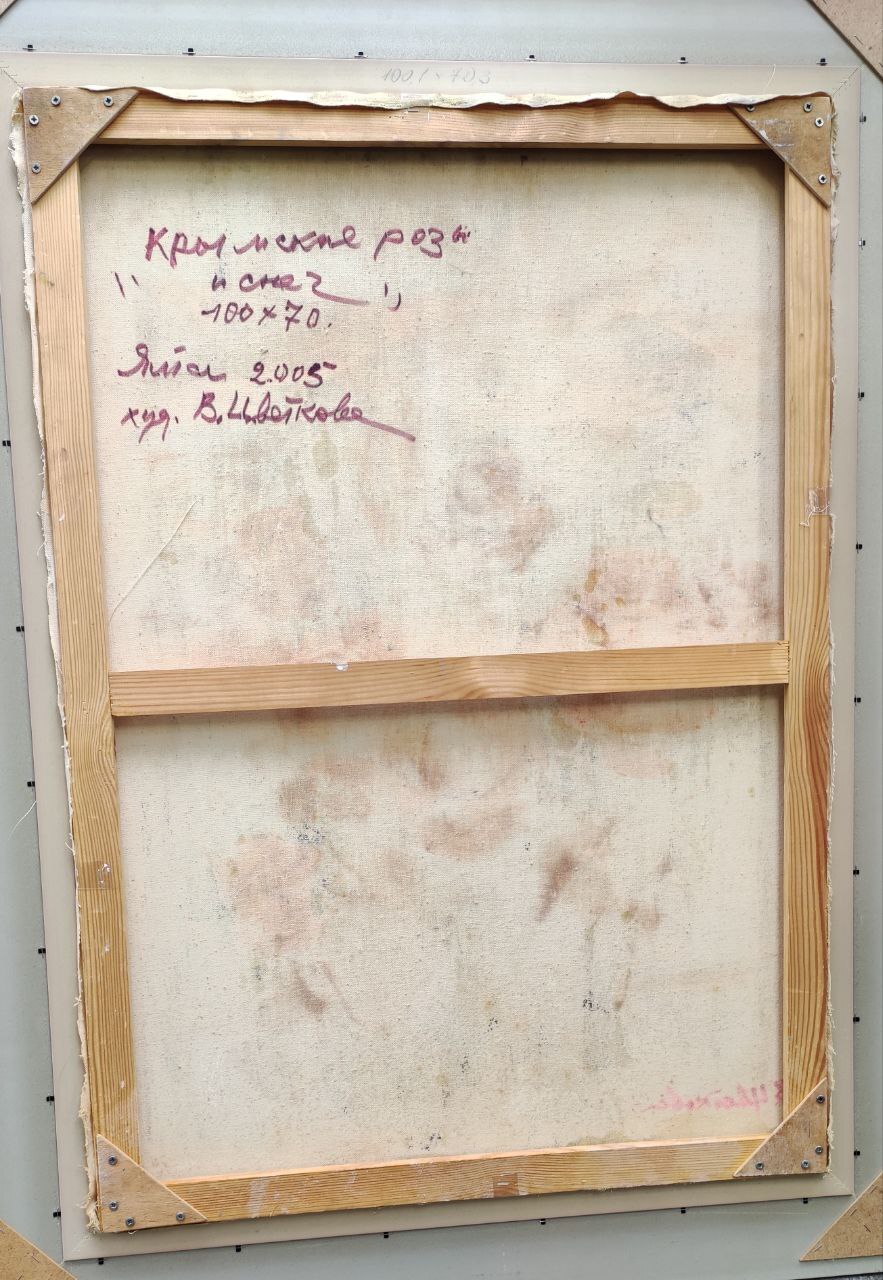 100,1 × 70,3
Крымские розы
" и снег "
100×70.
Ялта 2.005
худ. В.Цветкова
Цветкова